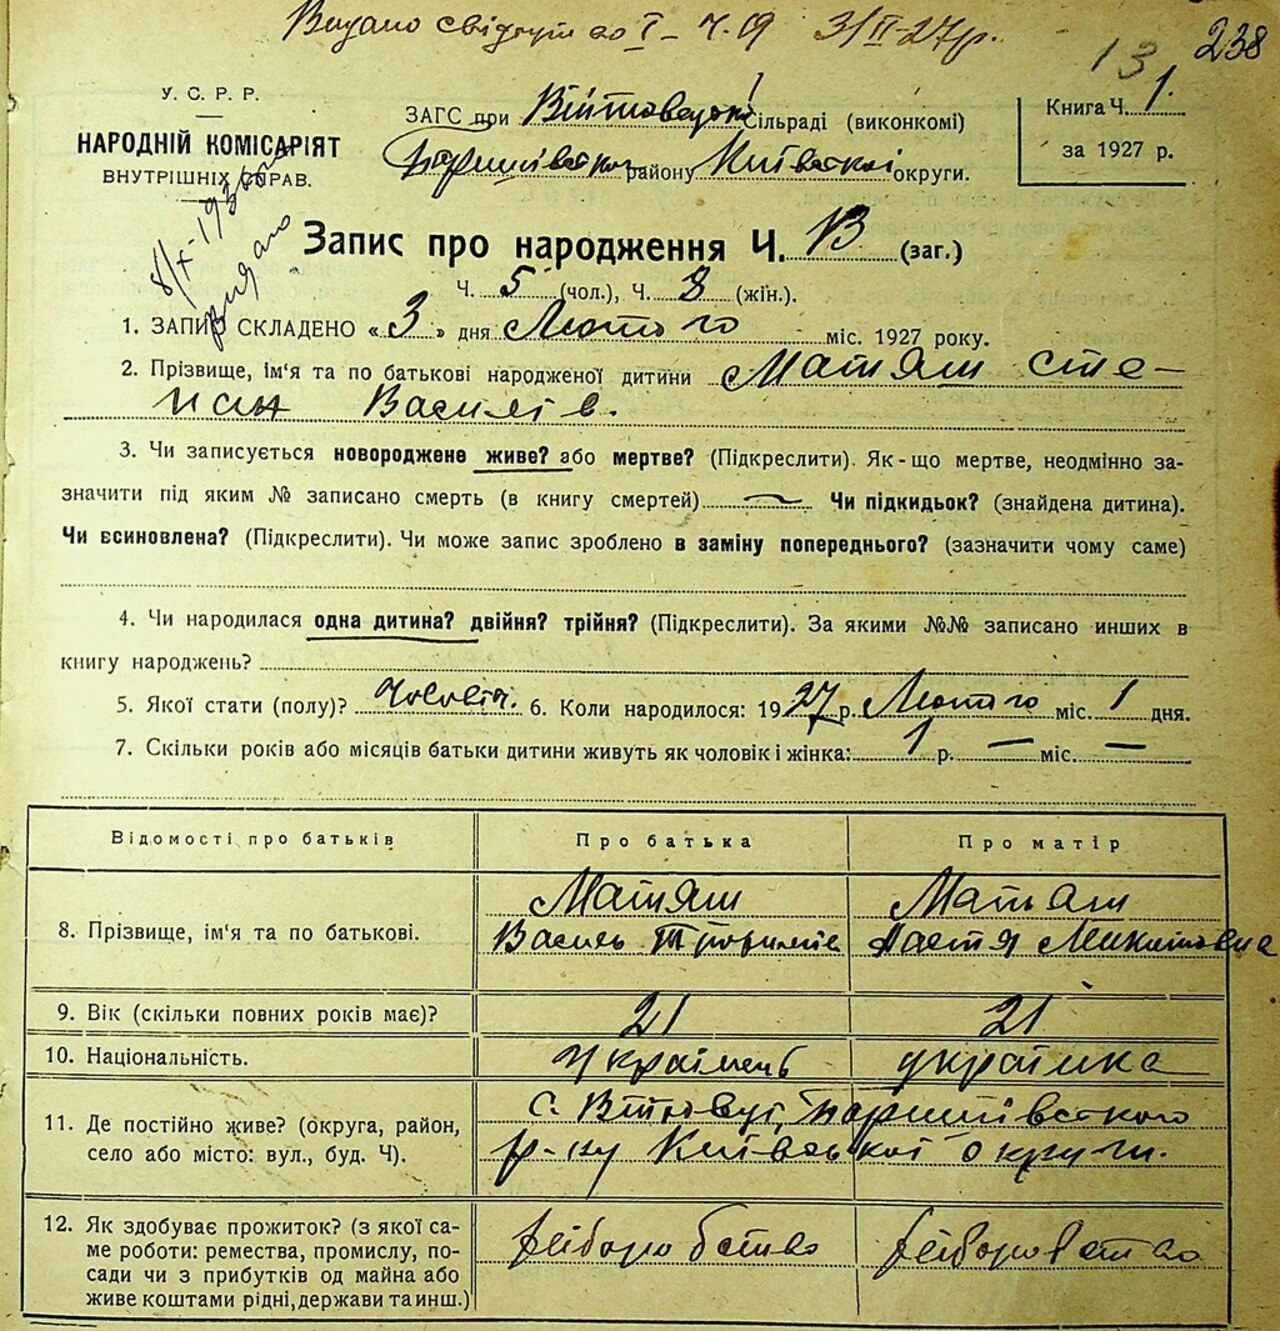 Видано свідоцтво І-Ч.19 3/ІІ-27р.
238
13
У. С. Р. Р.
НАРОДНІЙ КОМІСАРІЯТ
ВНУТРІШНІХ СПРАВ.
видано
ЗАГС при Війтовецькій Сільраді (виконкомі)
Баришівського району Київської округи.
Книга Ч. 1.
за 1927 р.
Запис про народження Ч. 13 (заг.)
Ч. 5 (чол.), Ч. 8 (жін.).
1. ЗАПИС СКЛАДЕНО «3» дня Лютого міс. 1927 року.
2. Прізвище, ім'я та по батькові народженої дитини Матяш Сте-
пан Василів.
3. Чи записується новороджене живе? або мертве? (Підкреслити). Як-що мертве, неодмінно за-
значити під яким № записано смерть (в книгу смертей) — Чи підкидьок? (знайдена дитина).
Чи всиновлена? (Підкреслити). Чи може запис зроблено в заміну попереднього? (зазначити чому саме)
4. Чи народилася одна дитина? двійня? трійня? (Підкреслити). За якими №№ записано инших в
книгу народжень?
5. Якої стати (полу)? Чоловіч. 6. Коли народилося: 1927 р. Лютого міс. 1 дня.
7. Скільки років або місяців батьки дитини живуть як чоловік і жінка: 1 р. — міс. —
Відомості про батьків
Про батька
Про матір
8. Прізвище, ім'я та по батькові.
Матяш
Василь
Матяш
Настя Микитовна
9. Вік (скільки повних років має)?
21
21
10. Національність.
Українець
українка
11. Де постійно живе? (округа, район,
село або місто: вул., буд. Ч).
с. Війтовці, Баришівського
р-ну Київської округи.
12. Як здобуває прожиток? (з якої са-
ме роботи: ремества, промислу, по-
сади чи з прибутків од майна або
живе коштами рідні, держави та инш.)
хліборобство
хліборобство